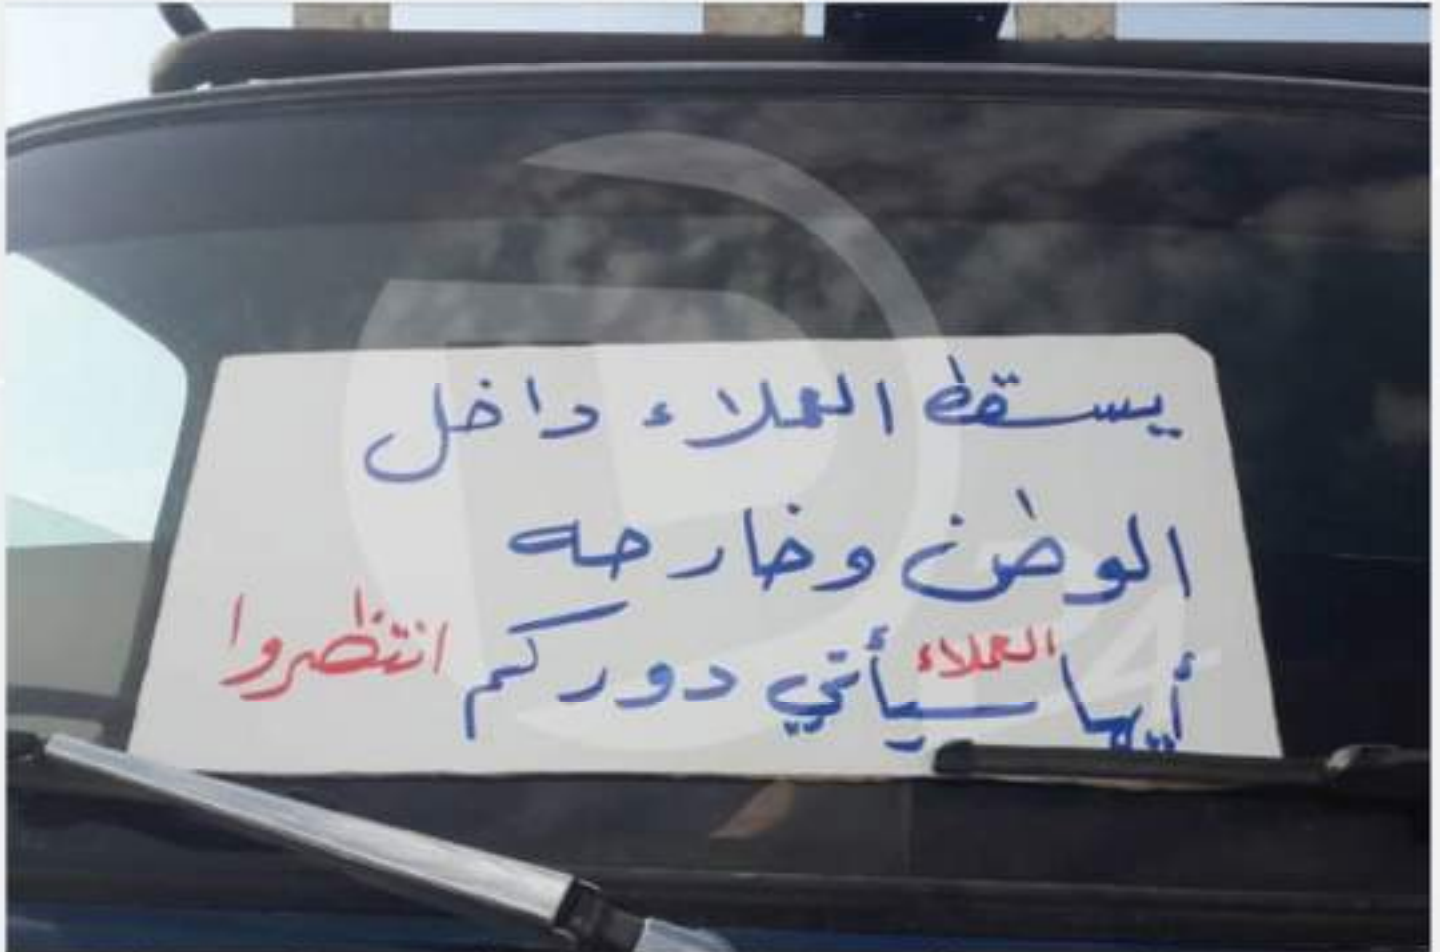 يسقط العملاء داخل
الوطن وخارجه
أيها العملاء سيأتي دوركم انتظروا